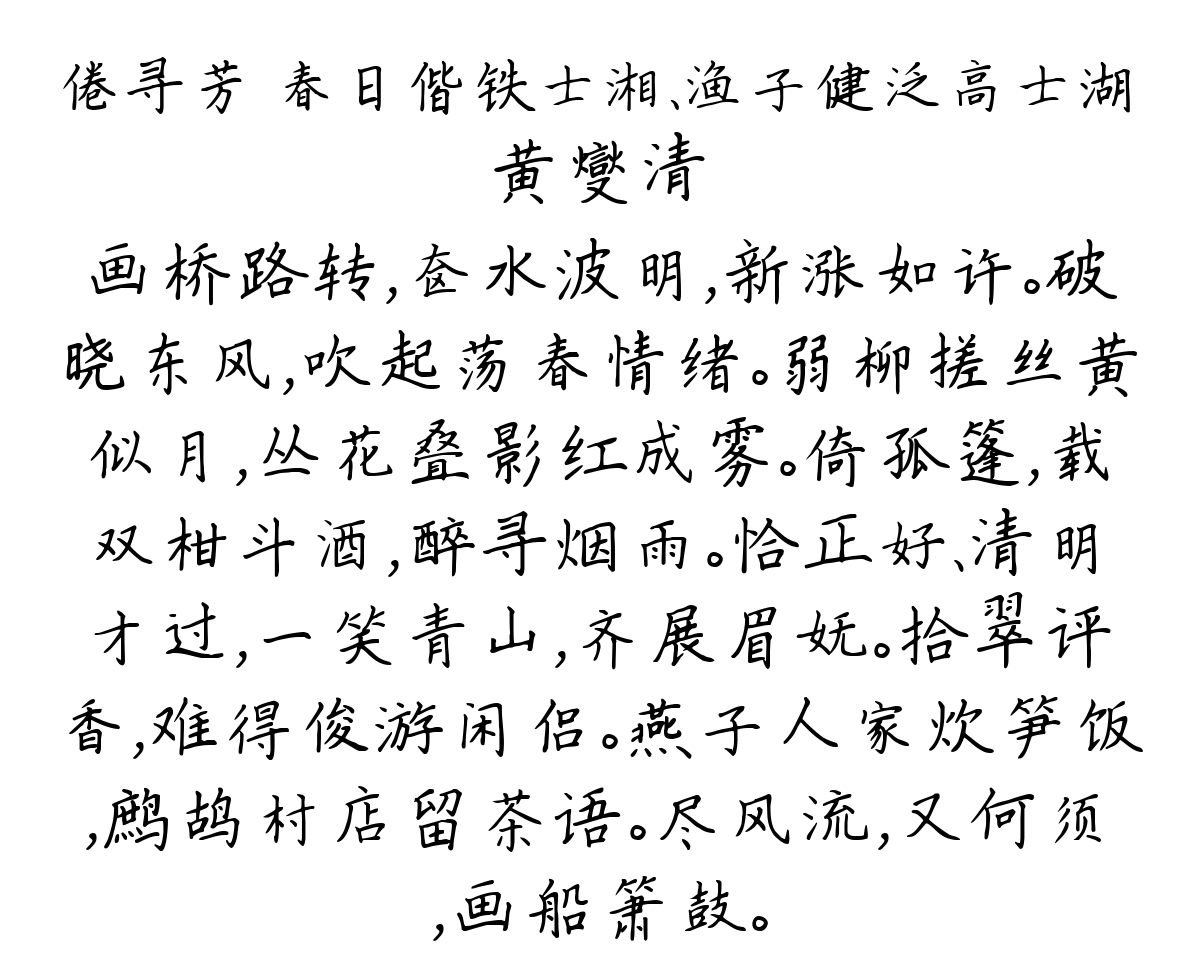 倦寻芳 春日偕铁士湘、渔子健泛高士湖
黄燮清
画桥路转,奁水波明,新涨如许。破
晓东风,吹起荡春情绪。弱柳搓丝黄
似月,丛花叠影红成雾。倚孤篷,载
双柑斗酒,醉寻烟雨。恰正好、清明
才过,一笑青山,齐展眉妩。拾翠评
香,难得俊游闲侣。燕子人家炊笋饭
,鹧鸪村店留茶语。尽风流,又何须
,画船箫鼓。